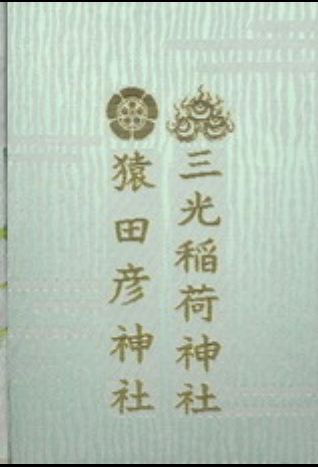 三光稲荷神社
猿田彦神社